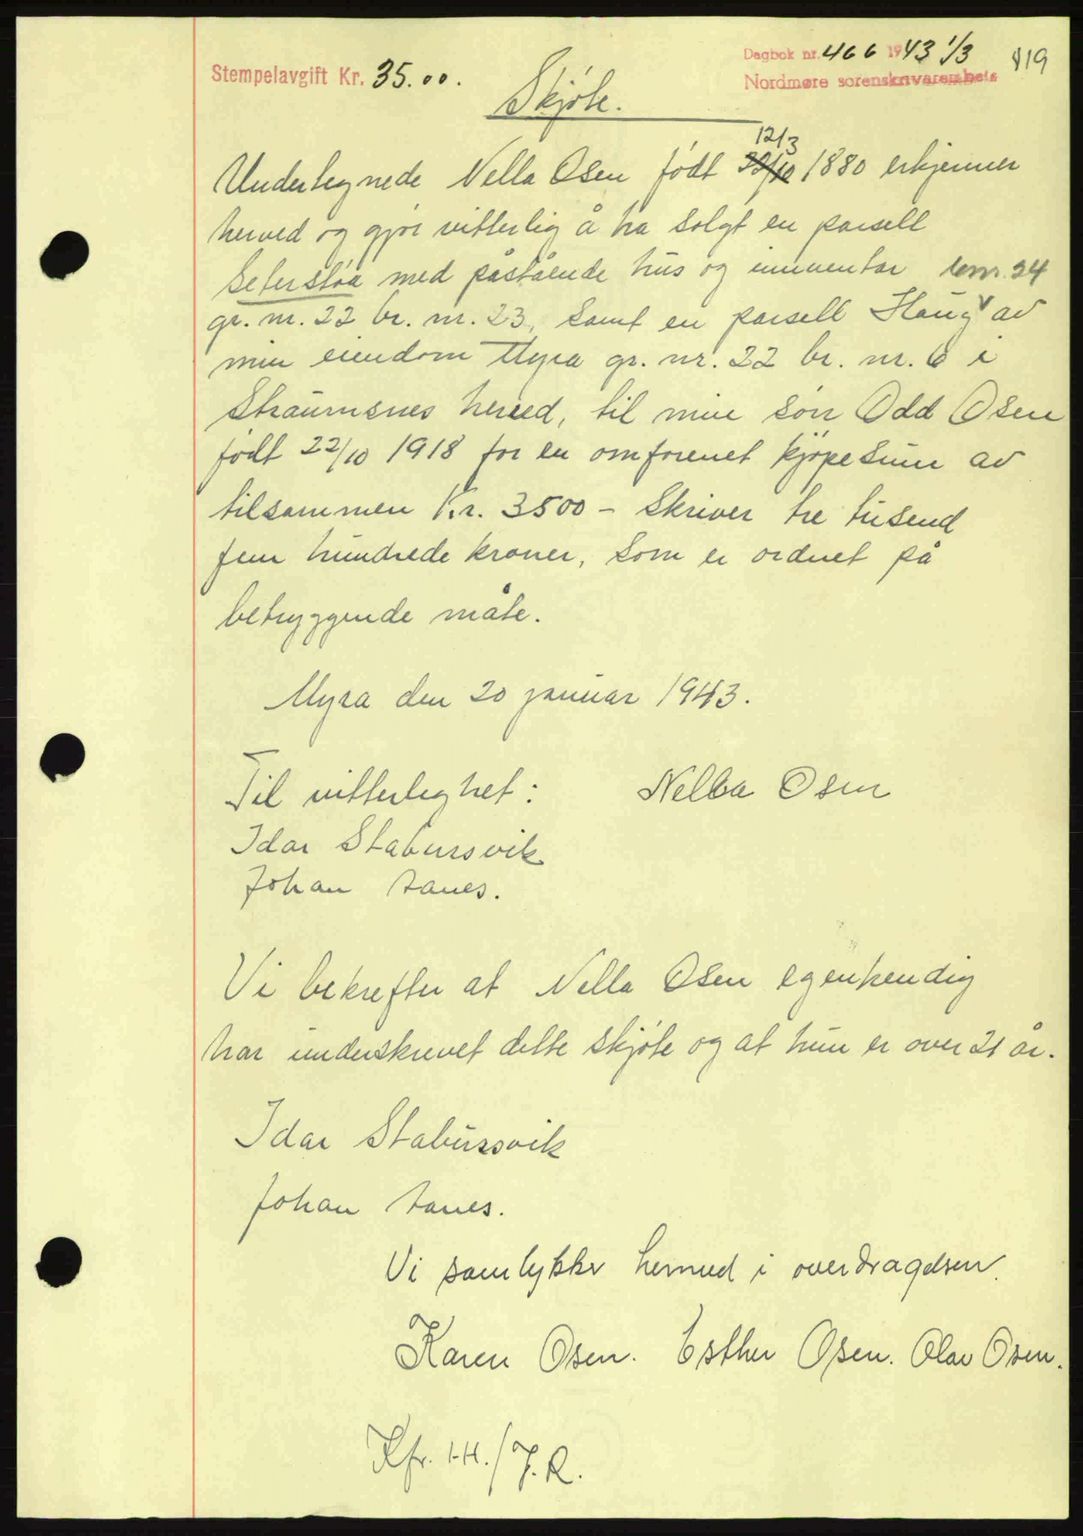 Dagbok nr. 466 1943 1/3
119
Stempelavgift Kr. 35.00.
Nordmøre sorenskriverembete
Skjøte.
12/3
Undertegnede Nella Osen født 22/10 1880 erkjenner
herved og gjør vitterlig å ha solgt en parsell
Seterstøa med påstående hus og innventar bnr. 24
gr. nr. 22 br. nr. 23, samt en parsell Haug av
min eiendom Myra gr. nr. 22 br. nr. 6 i
Straumsnes hered, til min sön Odd Osen
født 22/10 1918 for en omforenet kjöpesum av
tilsammen Kr. 3500 - Skriver tre tusend
fem hundrede kroner, som er ordnet på
betryggende måte.
Myra den 20 januar 1943.
Til vitterleghet: Nella Osen
Idar Stabursvik
Johan Aanes.
Vi bekrefter at Nella Osen egenhendig
har underskrevet dette skjøte og at hun er over 21 år.
Idar Stabursvik
Johan Aanes.
Vi samtykker herved i overdragelsen.
Karen Osen. Esther Osen. Olav Osen.
Kfr. I.H./J.R.